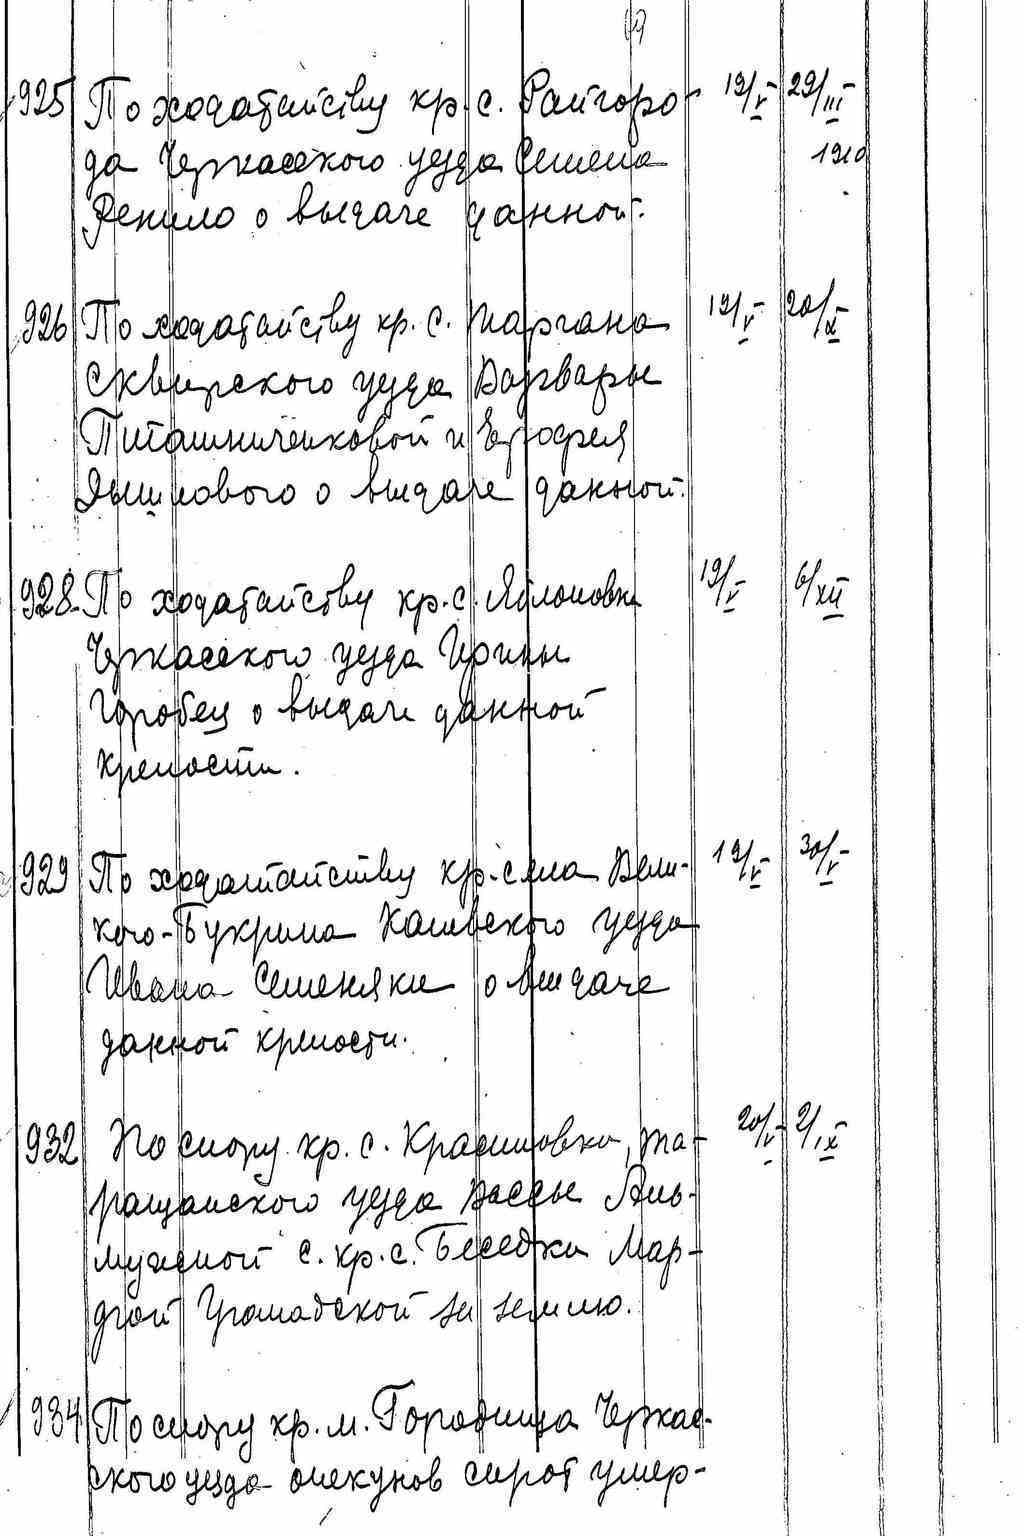 925 По ходатайству кр. с. Райгоро- 19/V 29/III
да Черкасского уезда Семена 1910
Репило о выдаче данной.
926 По ходатайству кр. с. 19/V 20/X
Сквирского уезда Варвары
и Ерофея
о выдаче данной.
928 По ходатайству кр. с. Яблоновки 19/V 6/XII
Черкасского уезда Ирины
Горобец о выдаче данной
крепости.
929 По ходатайству кр. села Вели- 19/V 30/V
кого-Букрина Каневского уезда
Ивана Семеняки о выдаче
данной крепости.
932 По спору кр. с. Красиловки, Та- 20/V 2/IX
ращанского уезда Вассы
с. кр. с. Беседки Мар-
Громадской за землю.
934 По спору кр. м. Городища Черкас-
ского уезда опекунов сирот умер-